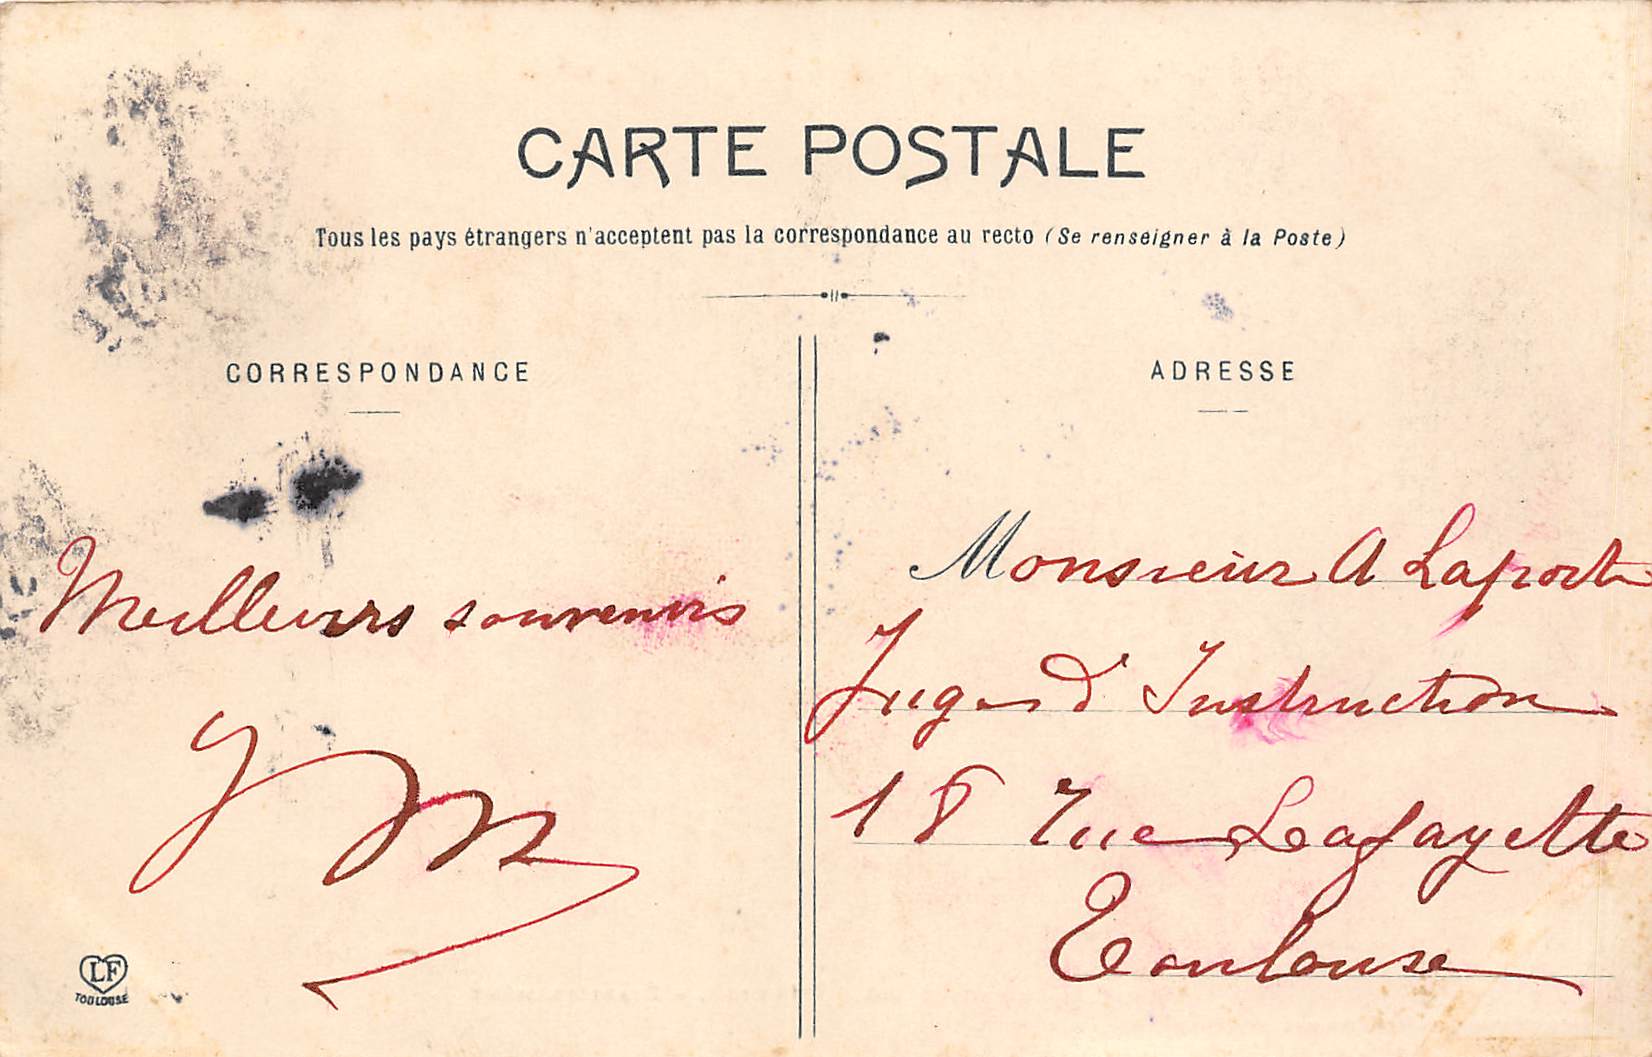 CARTE POSTALE
Tous les pays étrangers n'acceptent pas la correspondance au recto (Se renseigner à la Poste)
CORRESPONDANCE
Meilleurs souvenirs
LF
TOULOUSE
ADRESSE
Monsieur A Laporte
Juge d'Instruction
18 rue Lafayette
Toulouse